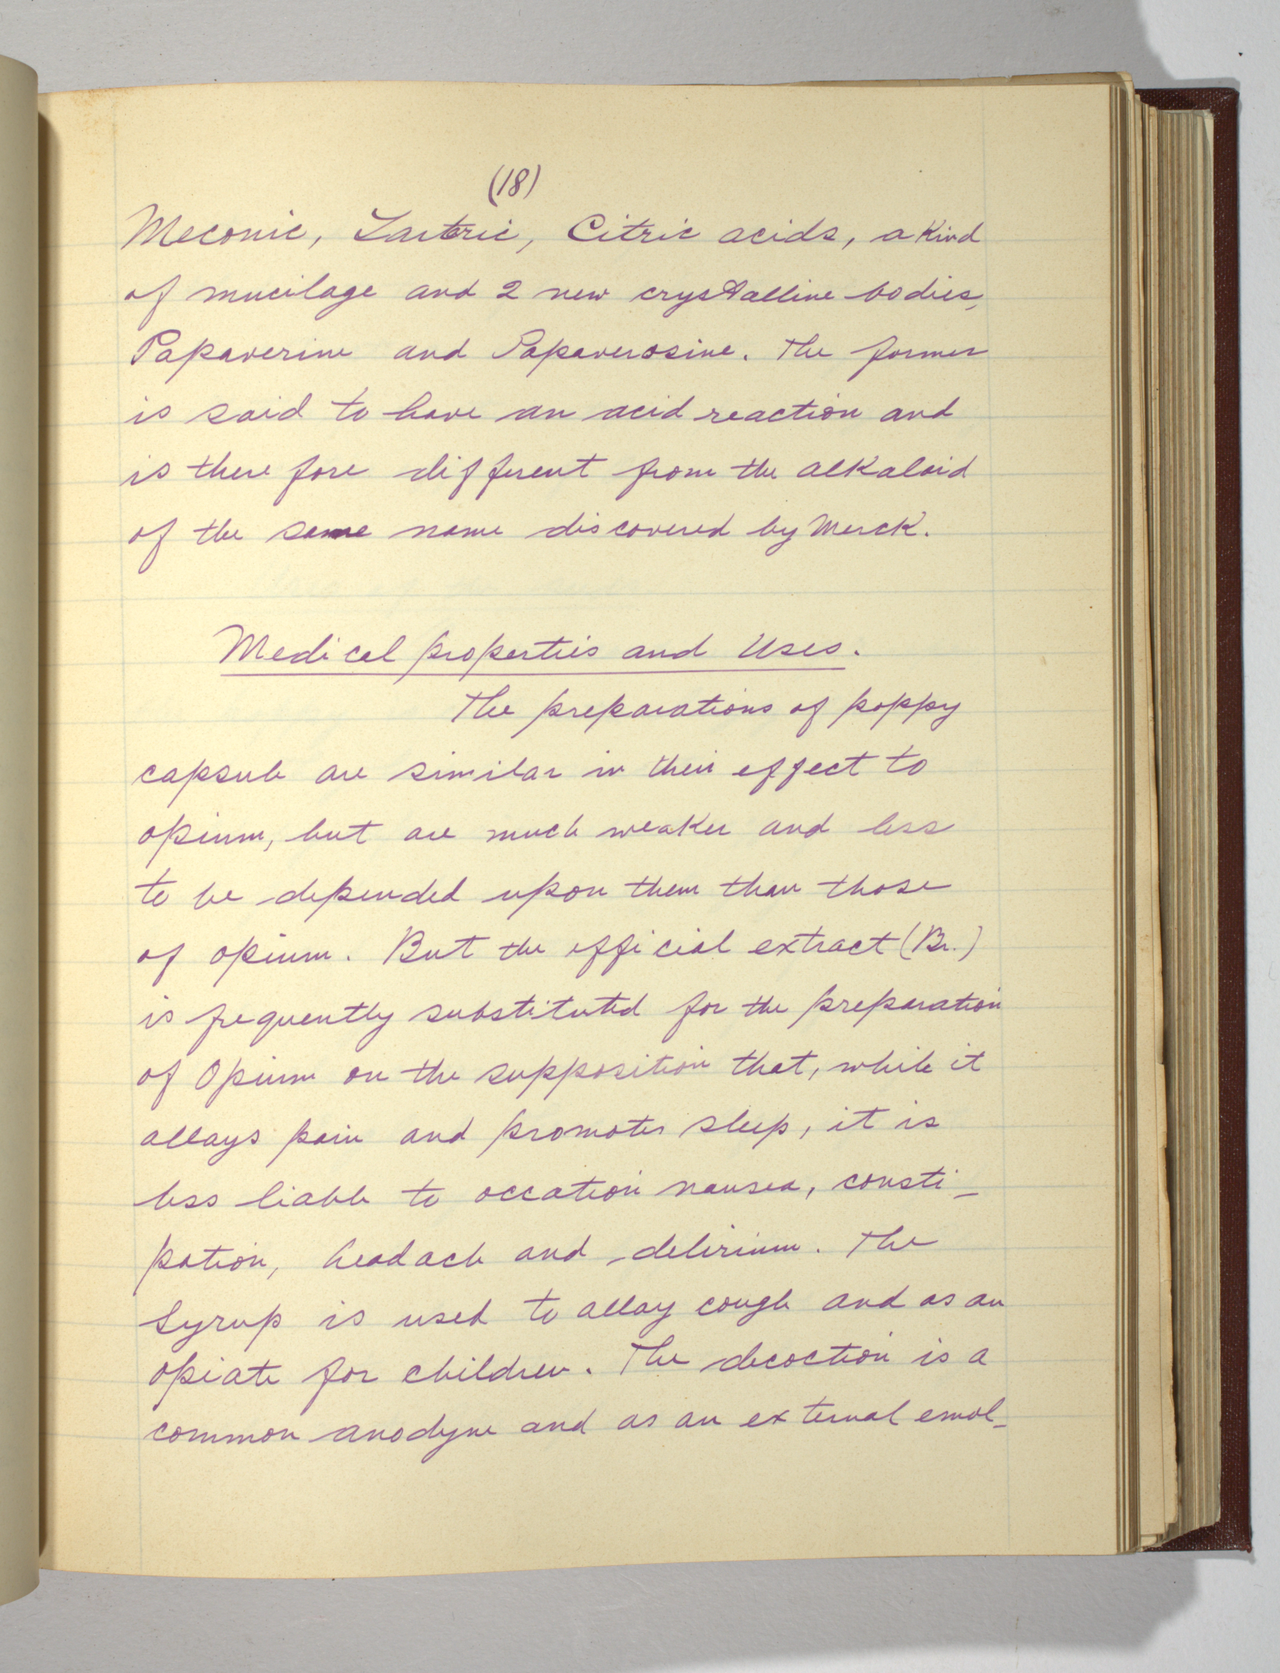 (18)
Meconic, Tartric, Citric acids, a kind
of mucilage and 2 new crystalline bodies,
Papaverine and Papaverosine. The former
is said to have an acid reaction and
is there fore different from the alkaloid
of the same name discovered by Merck.
Medical properties and Uses.
The preparations of poppy
capsule are similar in their effect to
opium, but are much weaker and less
to be depended upon them than those
of opium. But the official extract (Br.)
is frequently substituted for the preparation
of Opium on the supposition that, while it
allays pain and promotes sleep, it is
less liable to occation nausea, consti-
pation, headach and delirium. The
Syrup is used to allay cough and as an
opiate for children. The decoction is a
common anodyne and as an external emol-